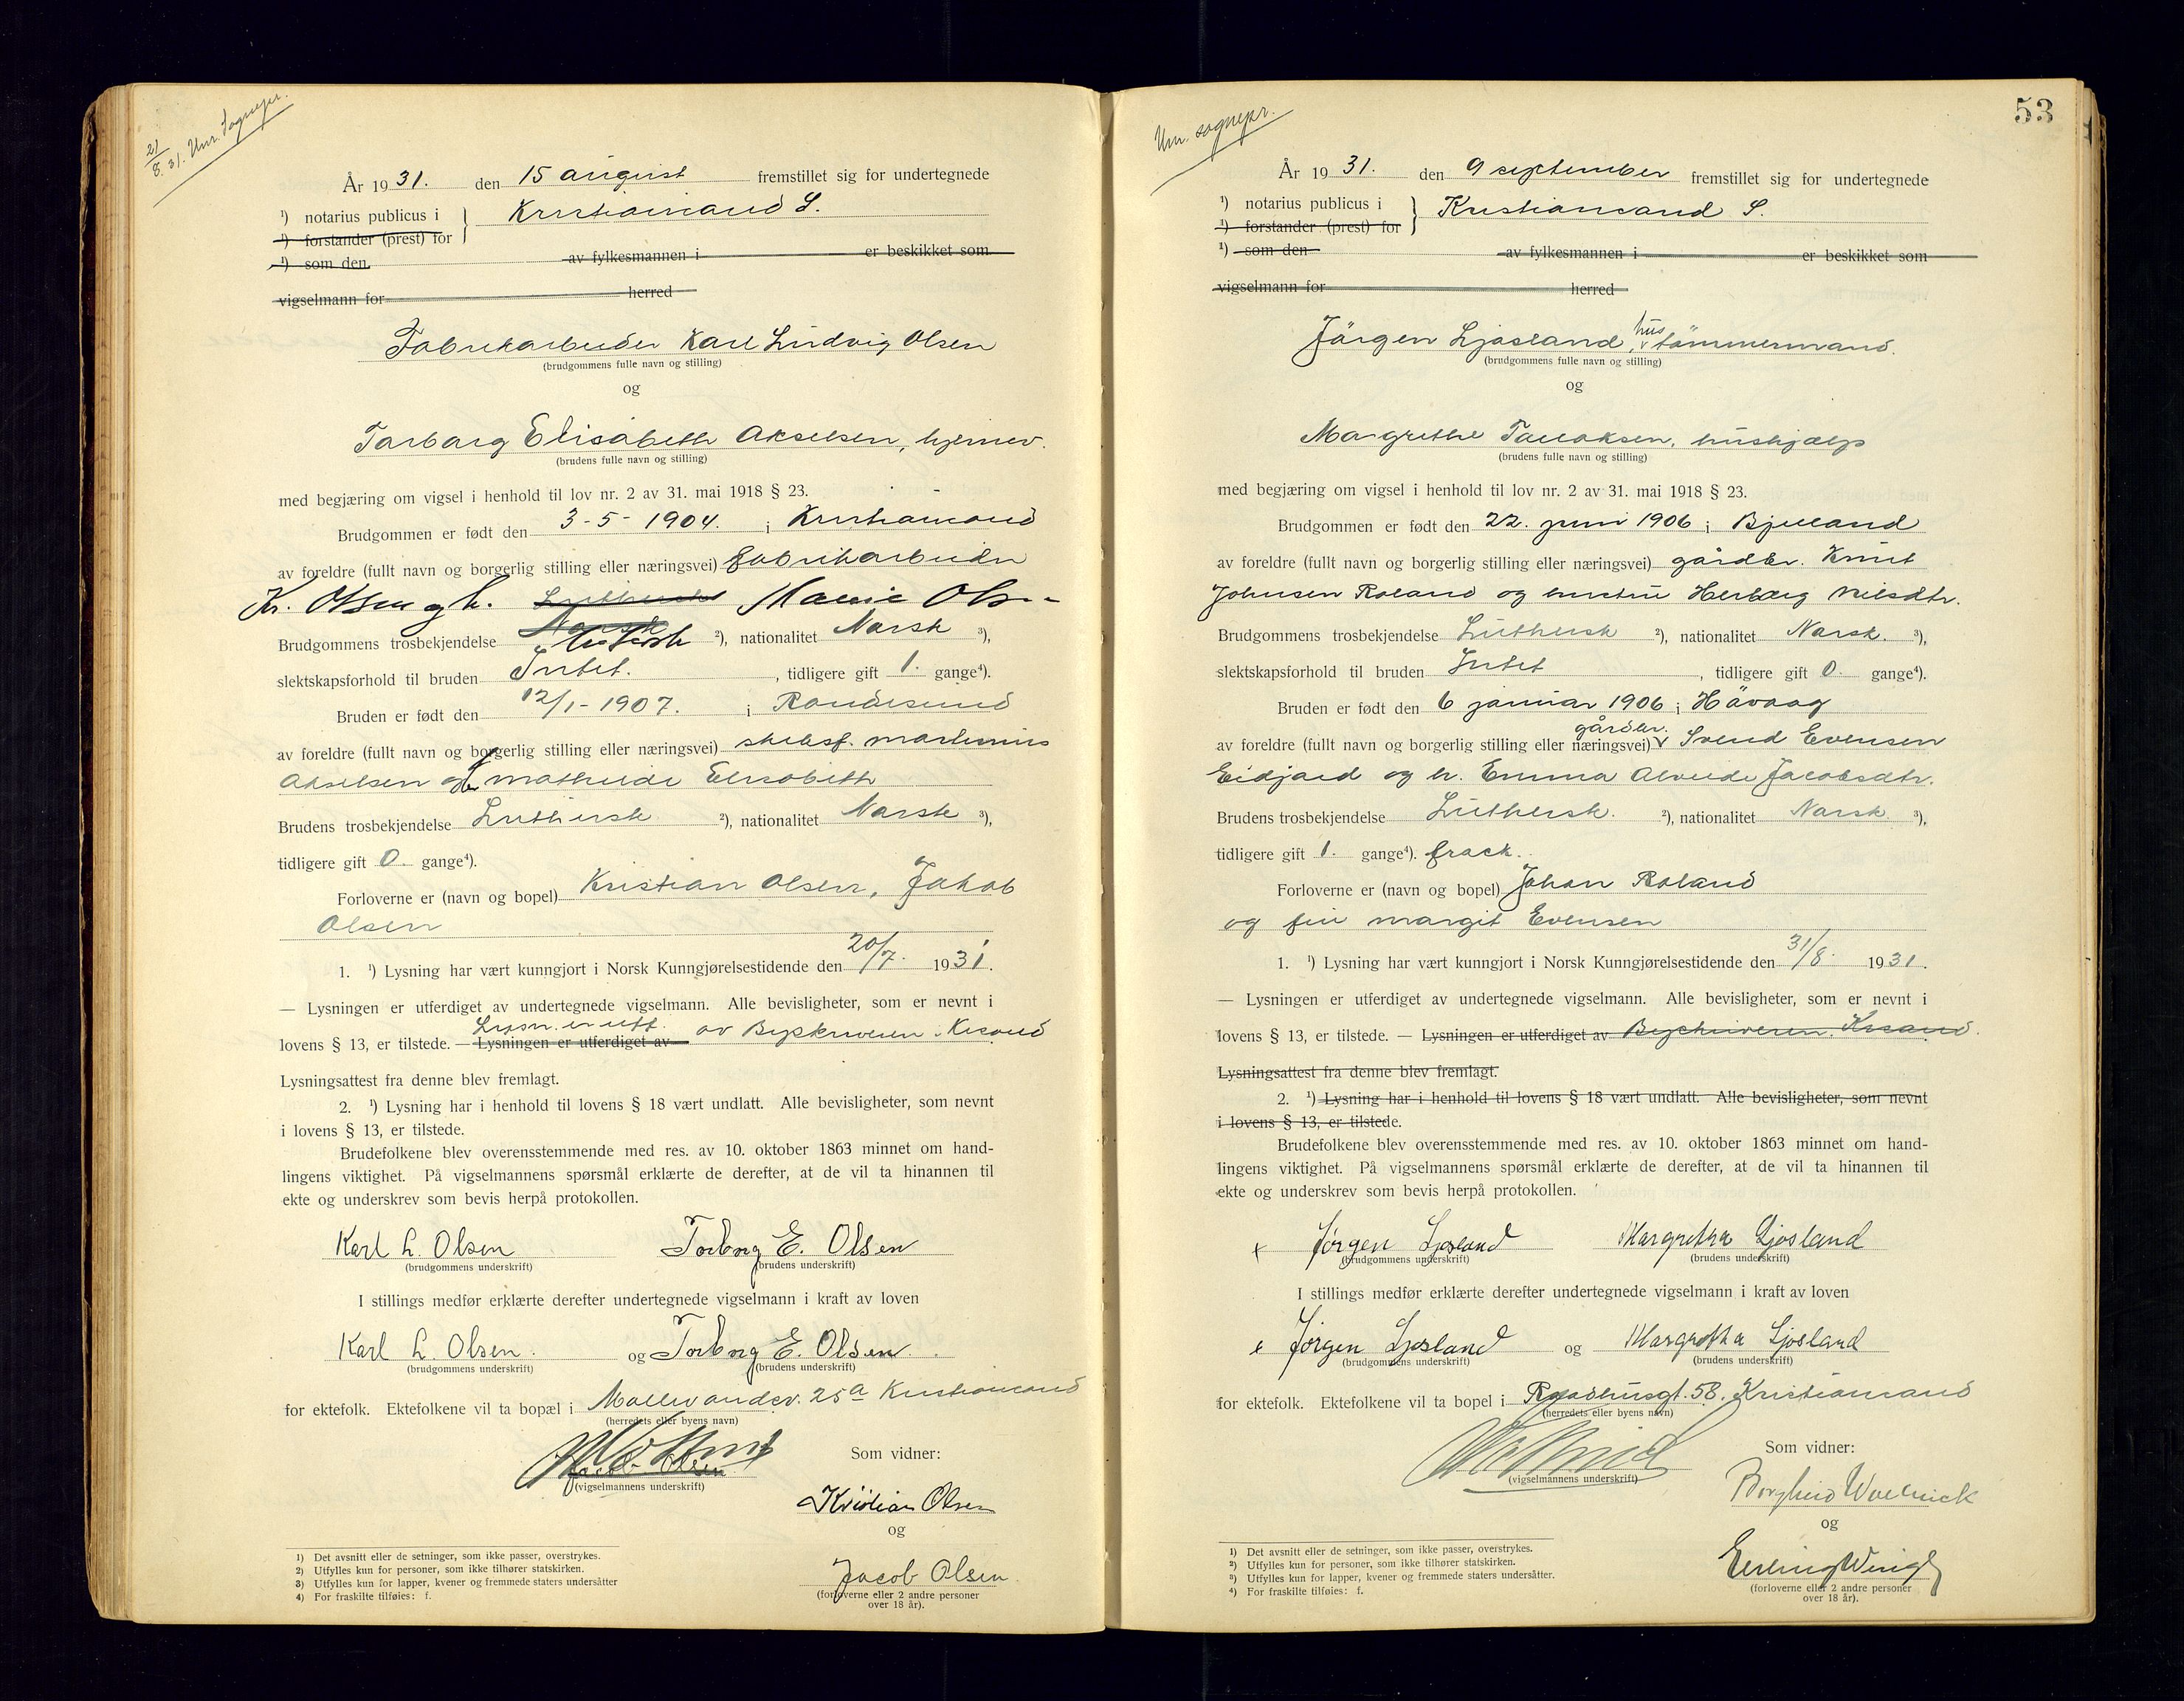 21/8. 31. Unr. Sognepr.
År 19 31. den 15 august fremstillet sig for undertegnede
¹) notarius publicus i } Kristiansand S.
¹) forstander (prest) for
¹) som den av fylkesmannen i er beskikket som
vigselmann for herred
Fabrikarbeider Karl Ludvig Olsen
(brudgommens fulle navn og stilling)
og
Torborg Elisabeth Akselsen, hjemmev.
(brudens fulle navn og stilling)
med begjæring om vigsel i henhold til lov nr. 2 av 31. mai 1918 § 23.
Brudgommen er født den 3-5-1904. i Kristiansand
av foreldre (fullt navn og borgerlig stilling eller næringsvei) fabrikarbeider
Kr. Olsen og h. Marie Olsen
Brudgommens trosbekjendelse Luthersk ²), nationalitet Norsk ³),
slektskapsforhold til bruden Intet. , tidligere gift 1. gange⁴).
Bruden er født den 12/1-1907. i Randesund
av foreldre (fullt navn og borgerlig stilling eller næringsvei) skibsf. Martinius
Akselsen og h. Mathilde Elisabeth
Brudens trosbekjendelse Luthersk ²), nationalitet Norsk ³),
tidligere gift 0. gange⁴).
Forloverne er (navn og bopel) Kristian Olsen, Jakob
Olsen
1. ¹) Lysning har vært kunngjort i Norsk Kunngjørelsestidende den 20/7. 1931.
— Lysningen er utferdiget av undertegnede vigselmann. Alle bevisligheter, som er nevnt i
Lysn. er utf.
lovens § 13, er tilstede. — Lysningen er utferdiget av av Byskriveren i Krsand
Lysningsattest fra denne blev fremlagt.
2. ¹) Lysning har i henhold til lovens § 18 vært undlatt. Alle bevisligheter, som nevnt
i lovens § 13, er tilstede.
Brudefolkene blev overensstemmende med res. av 10. oktober 1863 minnet om hand-
lingens viktighet. På vigselmannens spørsmål erklærte de derefter, at de vil ta hinannen til
ekte og underskrev som bevis herpå protokollen.
Karl L. Olsen Torborg E. Olsen
(brudgommens underskrift) (brudens underskrift)
I stillings medfør erklærte derefter undertegnede vigselmann i kraft av loven
Karl L. Olsen. og Torborg E. Olsen.
(brudgommens underskrift) (brudens underskrift)
for ektefolk. Ektefolkene vil ta bopæl i Mollevandsv. 25a Kristiansand
(herredets eller byens navn)
Som vidner:
Jacob Olsen
(vigselmannens underskrift)
Kristian Olsen
og
Jacob Olsen
(forloverne eller 2 andre personer
over 18 år).
1) Det avsnitt eller de setninger, som ikke passer, overstrykes.
2) Utfylles kun for personer, som ikke tilhører statskirken.
3) Utfylles kun for lapper, kvener og fremmede staters undersåtter
4) For fraskilte tilføies: f.
53
Unr. sognepr.
År 19 31. den 9 september fremstillet sig for undertegnede
¹) notarius publicus i } Kristiansand S.
¹) forstander (prest) for
¹) som den av fylkesmannen i er beskikket som
vigselmann for herred
Jörgen Ljosland, hustömmermand.
(brudgommens fulle navn og stilling)
og
Margrethe Tallaksen, hushjælp
(brudens fulle navn og stilling)
med begjæring om vigsel i henhold til lov nr. 2 av 31. mai 1918 § 23.
Brudgommen er født den 22. juni 1906 i Bjelland
av foreldre (fullt navn og borgerlig stilling eller næringsvei) gårdbr. Knut
Johnsen Roland og hustru Herborg Nilsdtr.
Brudgommens trosbekjendelse Luthersk ²), nationalitet Norsk. ³),
slektskapsforhold til bruden Intet , tidligere gift 0. gange⁴).
Bruden er født den 6 januar 1906 i Hövaag
gårdbr.
av foreldre (fullt navn og borgerlig stilling eller næringsvei) Svend Evensen
Eidjord og h. Emma Alvilde Jacobsdtr.
Brudens trosbekjendelse Luthersk. ²), nationalitet Norsk. ³),
tidligere gift 1. gange⁴). frask.
Forloverne er (navn og bopel) Johan Roland
og fru Margit Evensen
1. ¹) Lysning har vært kunngjort i Norsk Kunngjørelsestidende den 31/8. 1931.
— Lysningen er utferdiget av undertegnede vigselmann. Alle bevisligheter, som er nevnt i
lovens § 13, er tilstede. — Lysningen er utferdiget av Byskriveren, Krsand.
Lysningsattest fra denne blev fremlagt.
2. ¹) Lysning har i henhold til lovens § 18 vært undlatt. Alle bevisligheter, som nevnt
i lovens § 13, er tilstede.
Brudefolkene blev overensstemmende med res. av 10. oktober 1863 minnet om hand-
lingens viktighet. På vigselmannens spørsmål erklærte de derefter, at de vil ta hinannen til
ekte og underskrev som bevis herpå protokollen.
x Jørgen Ljosland Margretha Ljosland
(brudgommens underskrift) (brudens underskrift)
I stillings medfør erklærte derefter undertegnede vigselmann i kraft av loven
x Jørgen Ljosland og Margretha Ljosland
(brudgommens underskrift) (brudens underskrift)
for ektefolk. Ektefolkene vil ta bopel i Raadhusgt. 58. Kristiansand
(herredets eller byens navn)
Som vidner:
(vigselmannens underskrift)
Borghild
og
Erling
(forloverne eller 2 andre personer
over 18 år).
1) Det avsnitt eller de setninger, som ikke passer, overstrykes.
2) Utfylles kun for personer, som ikke tilhører statskirken.
3) Utfylles kun for lapper, kvener og fremmede staters undersåtter.
4) For fraskilte tilføies: f.